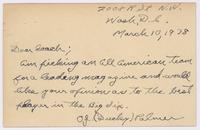 2008 R St. N.W.
Wash, D.C.
March 10, 1928
Dear Coach;
Am picking an all American team
for a leading magazine and would
like your opinion as to the best
player in the Big Six.
O.J. (Ducky) Palmer